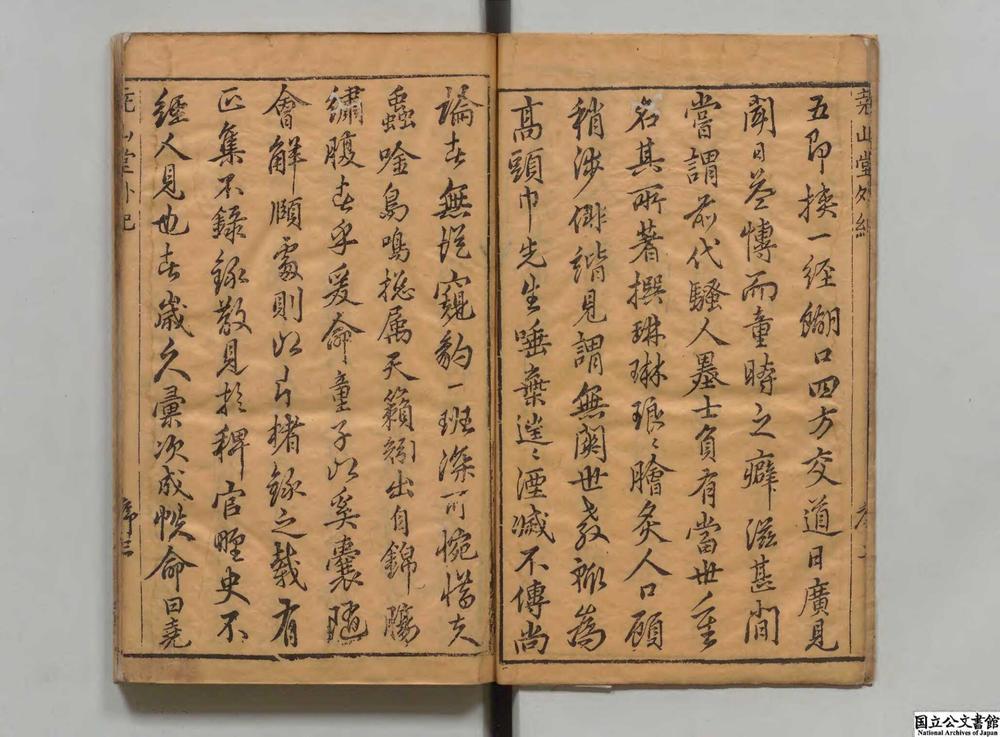 堯山堂外紀
五即挾一経餬口四方交道日廣見
聞日益博而童時之癖滋甚間
嘗謂前代騷人墨士負有當世重
名其所著撰琳琳琅〻膾炙人口顧
稍涉俳諧見謂無關世教祇為
高頭巾先生唾棄遂〻湮滅不傳尚
論者無從窺豹一班深可惋惜夫
蟲唫鳥鳴摠属天籟矧出自錦腸
繡腹者乎爰命童子以奚囊隨
會解頤處則以片楮錄之載有
正集不錄錄散見於稗官野史不
經人見也者歲久彙次成帙命曰堯
堯山堂外紀
序三
国立公文書館
National Archives of Japan